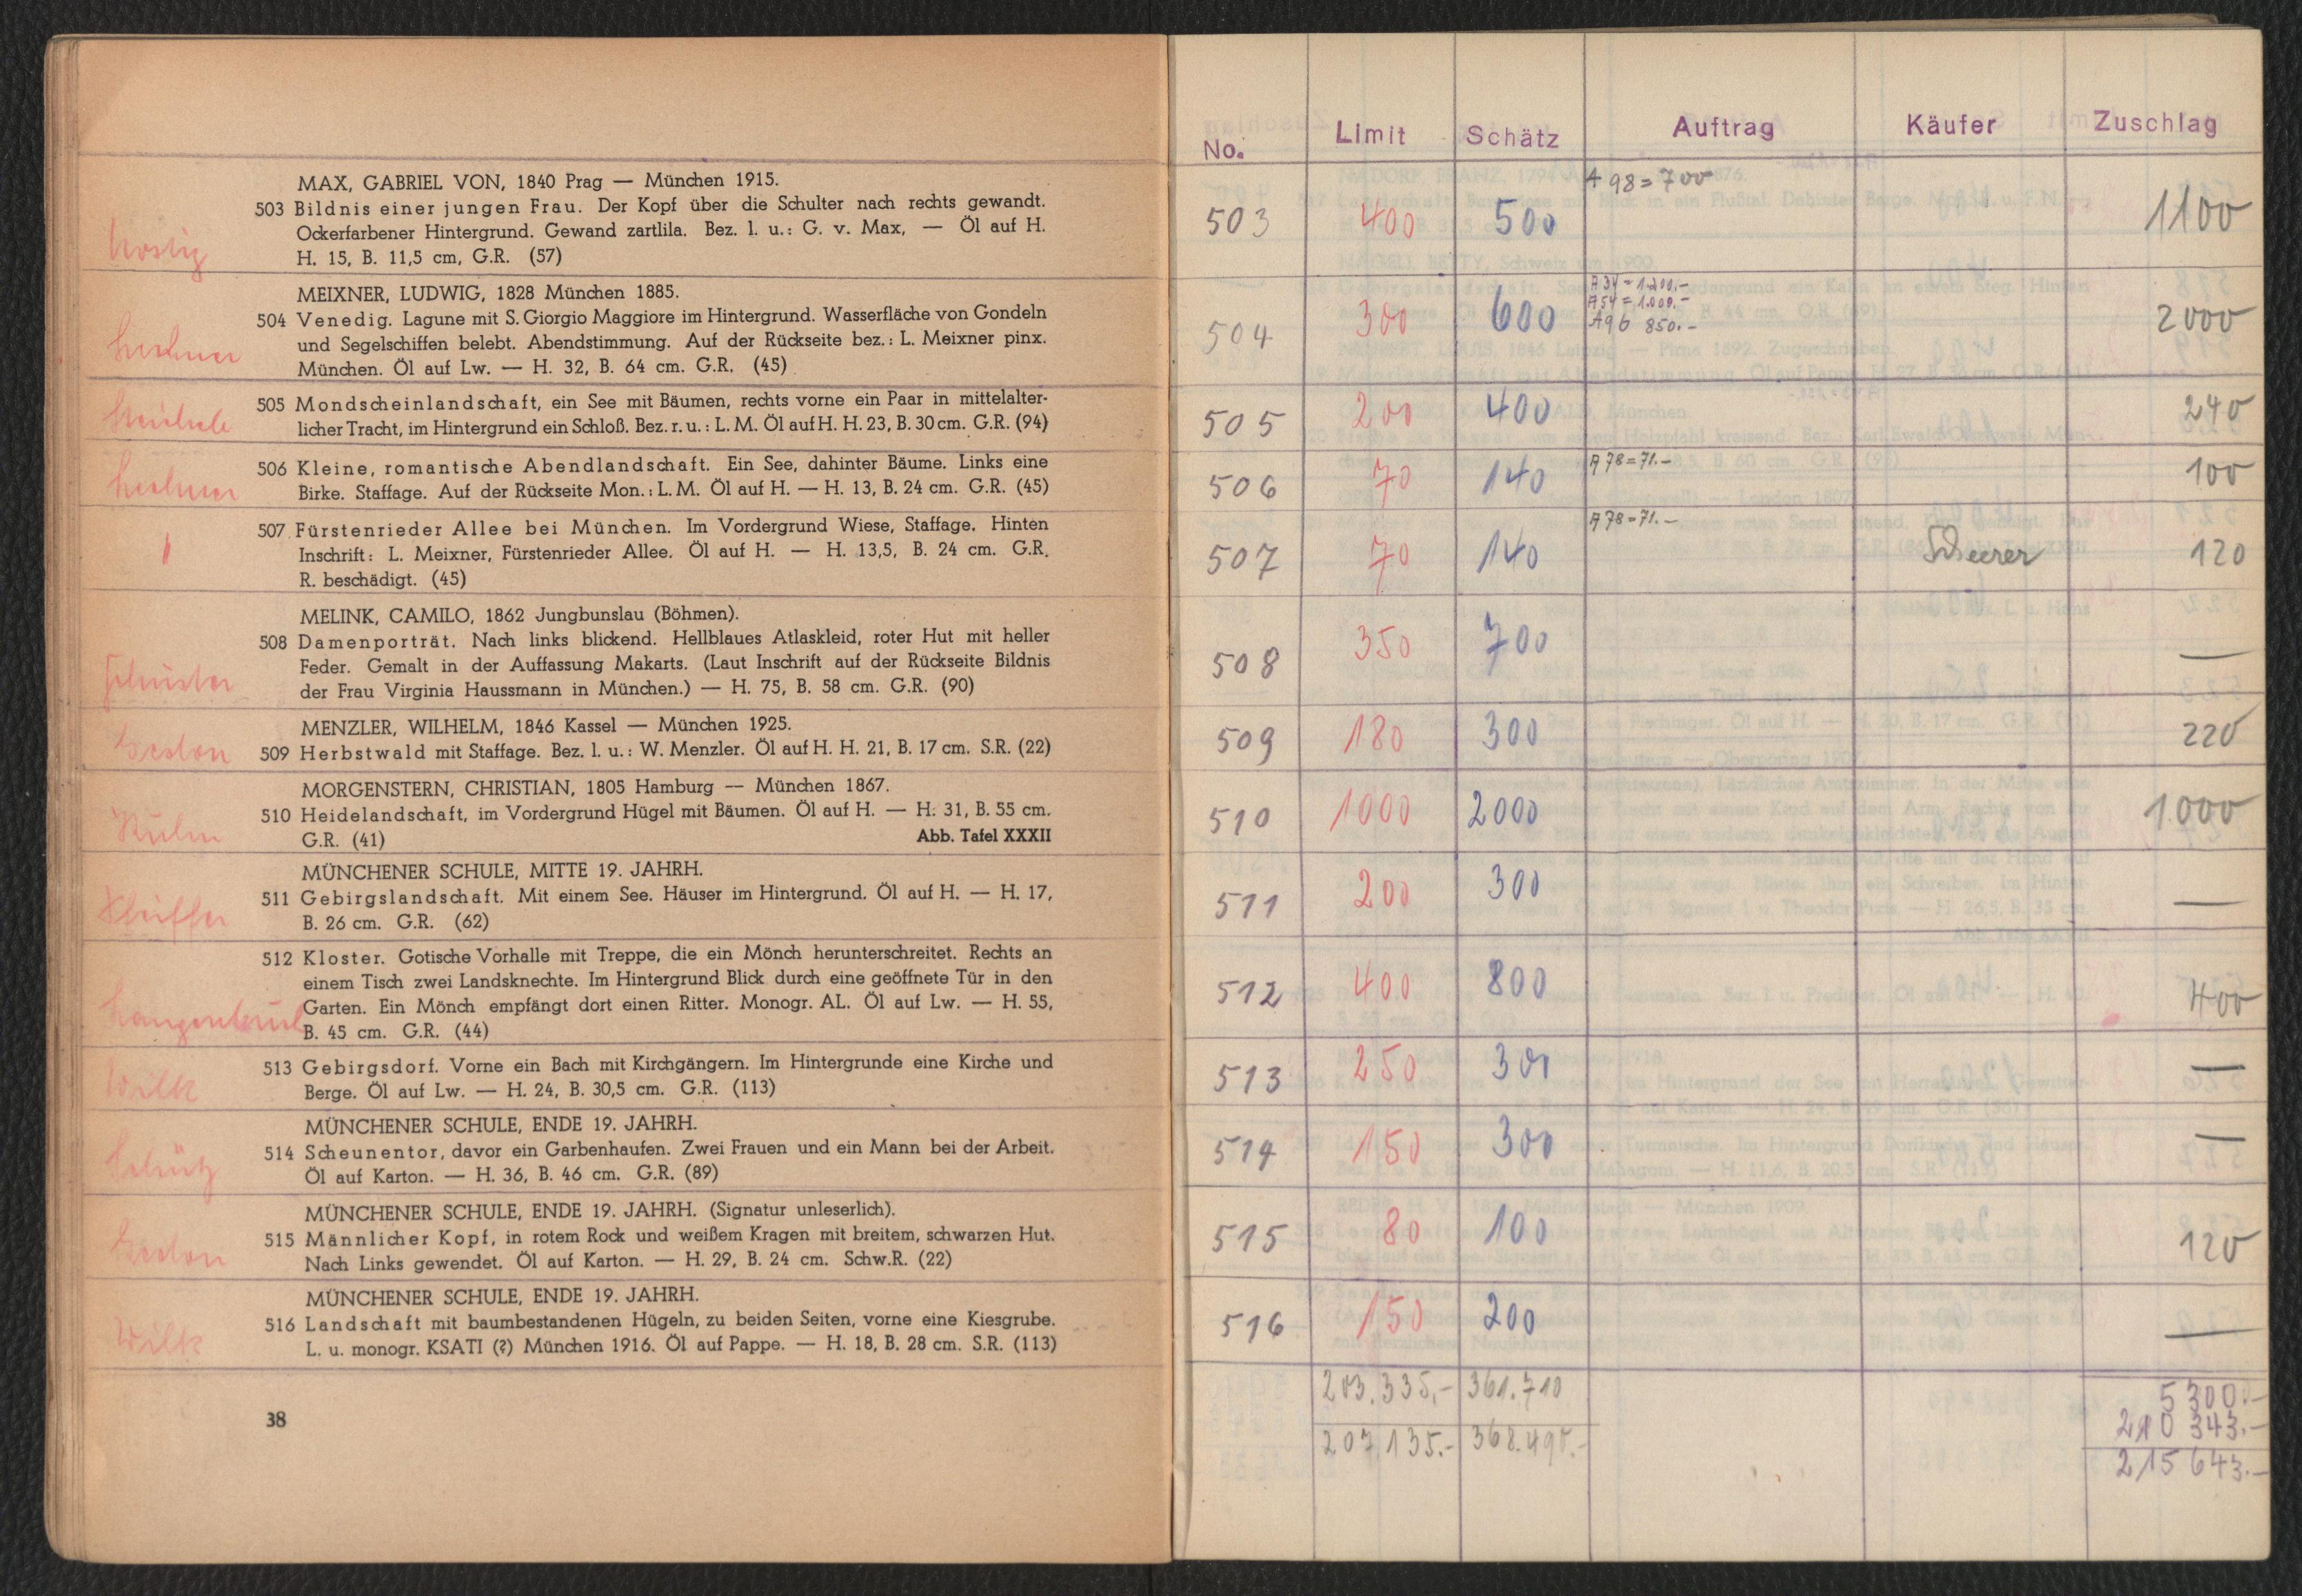 MAX, GABRIEL VON, 1840 Prag — München 1915.
503 Bildnis einer jungen Frau. Der Kopf über die Schulter nach rechts gewandt.
Ockerfarbener Hintergrund. Gewand zartlila. Bez. l. u.: G. v. Max, — Öl auf H.
H. 15, B. 11,5 cm, G.R. (57)
MEIXNER, LUDWIG, 1828 München 1885.
504 Venedig. Lagune mit S. Giorgio Maggiore im Hintergrund. Wasserfläche von Gondeln
und Segelschiffen belebt. Abendstimmung. Auf der Rückseite bez.: L. Meixner pinx.
Lechner
München. Öl auf Lw. — H. 32, B. 64 cm. G.R. (45)
505 Mondscheinlandschaft, ein See mit Bäumen, rechts vorne ein Paar in mittelalter-
licher Tracht, im Hintergrund ein Schloß. Bez. r. u.: L. M. Öl auf H. H. 23, B. 30 cm. G.R. (94)
506 Kleine, romantische Abendlandschaft. Ein See, dahinter Bäume. Links eine
Lechner
Birke. Staffage. Auf der Rückseite Mon.: L. M. Öl auf H. — H. 13, B. 24 cm. G.R. (45)
507 Fürstenrieder Allee bei München. Im Vordergrund Wiese, Staffage. Hinten
Inschrift: L. Meixner, Fürstenrieder Allee. Öl auf H. — H. 13,5, B. 24 cm. G.R.
R. beschädigt. (45)
MELINK, CAMILO, 1862 Jungbunslau (Böhmen).
508 Damenporträt. Nach links blickend. Hellblaues Atlaskleid, roter Hut mit heller
Feder. Gemalt in der Auffassung Makarts. (Laut Inschrift auf der Rückseite Bildnis
Schuster
der Frau Virginia Haussmann in München.) — H. 75, B. 58 cm. G.R. (90)
MENZLER, WILHELM, 1846 Kassel — München 1925.
509 Herbstwald mit Staffage. Bez. l. u.: W. Menzler. Öl auf H. H. 21, B. 17 cm. S.R. (22)
MORGENSTERN, CHRISTIAN, 1805 Hamburg — München 1867.
510 Heidelandschaft, im Vordergrund Hügel mit Bäumen. Öl auf H. — H. 31, B. 55 cm.
G.R. (41) Abb. Tafel XXXII
MÜNCHENER SCHULE, MITTE 19. JAHRH.
511 Gebirgslandschaft. Mit einem See. Häuser im Hintergrund. Öl auf H. — H. 17,
B. 26 cm. G.R. (62)
512 Kloster. Gotische Vorhalle mit Treppe, die ein Mönch herunterschreitet. Rechts an
einem Tisch zwei Landsknechte. Im Hintergrund Blick durch eine geöffnete Tür in den
Garten. Ein Mönch empfängt dort einen Ritter. Monogr. AL. Öl auf Lw. — H. 55,
B. 45 cm. G.R. (44)
513 Gebirgsdorf. Vorne ein Bach mit Kirchgängern. Im Hintergrunde eine Kirche und
Wilk
Berge. Öl auf Lw. — H. 24, B. 30,5 cm. G.R. (113)
MÜNCHENER SCHULE, ENDE 19. JAHRH.
514 Scheunentor, davor ein Garbenhaufen. Zwei Frauen und ein Mann bei der Arbeit.
Schütz
Öl auf Karton. — H. 36, B. 46 cm. G.R. (89)
MÜNCHENER SCHULE, ENDE 19. JAHRH. (Signatur unleserlich).
515 Männlicher Kopf, in rotem Rock und weißem Kragen mit breitem, schwarzen Hut.
Nach Links gewendet. Öl auf Karton. — H. 29, B. 24 cm. Schw.R. (22)
MÜNCHENER SCHULE, ENDE 19. JAHRH.
516 Landschaft mit baumbestandenen Hügeln, zu beiden Seiten, vorne eine Kiesgrube.
Wilk
L. u. monogr. KSATI (?) München 1916. Öl auf Pappe. — H. 18, B. 28 cm. S.R. (113)
38
No. Limit Schätz Auftrag Käufer Zuschlag
503 400 500 A 98 = 700 1100
504 300 600 A 34 = 1.200.- 2000
A 54 = 1.000.-
A 96 850.-
505 200 400 240
506 70 140 A 78 = 71.- 100
507 70 140 A 78 = 71.- Scheerer 120
508 350 700 —
509 180 300 220
510 1000 2000 1000
511 200 300 —
512 400 800 400
513 250 300 —
514 150 300 —
515 80 100 120
516 150 200 —
203.335,- 361.710 5300.-
210 343.-
207.135.- 368.490.- 215 643.-